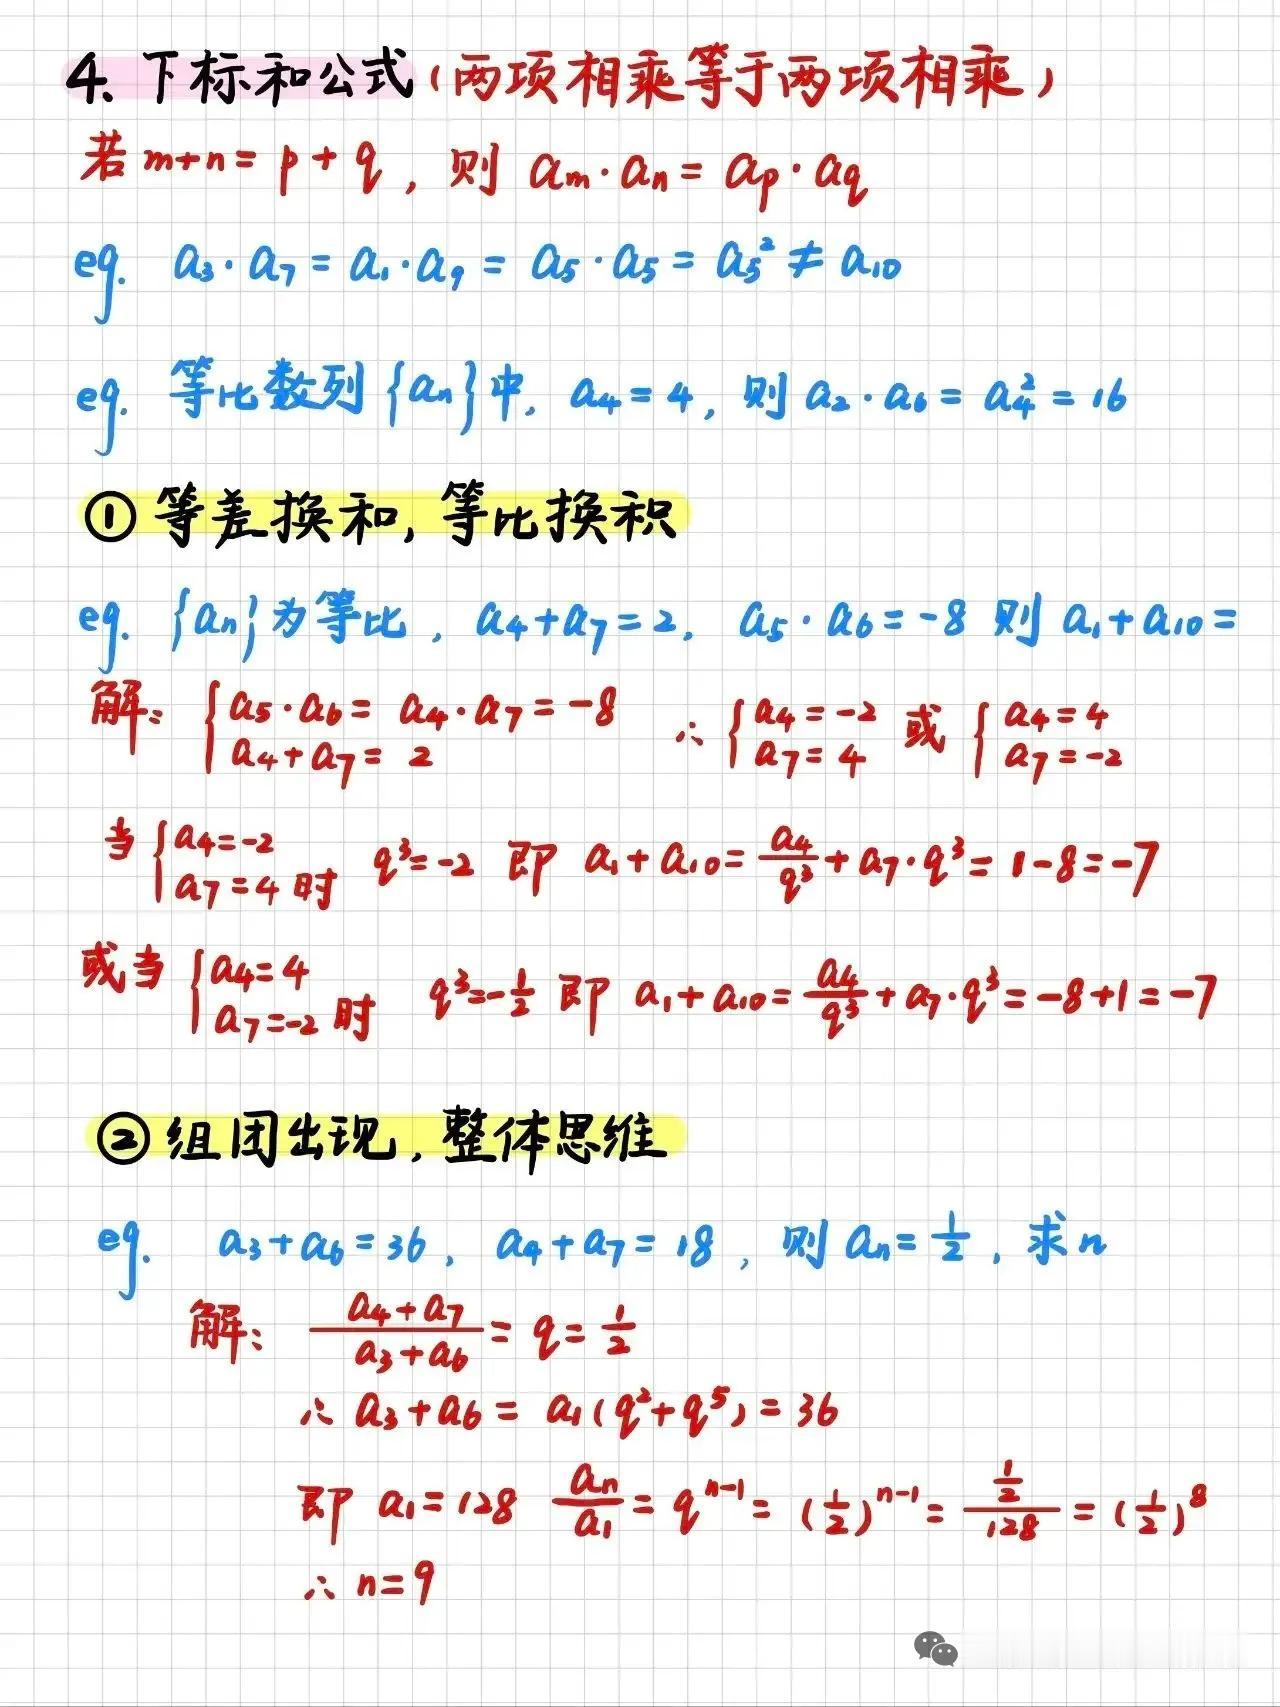 4. 下标和公式(两项相乘等于两项相乘)
若 m+n=p+q, 则 aₘ·aₙ=aₚ·a_q
eg. a₃·a₇=a₁·a₉=a₅·a₅=a₅²≠a₁₀
eg. 等比数列{aₙ}中, a₄=4, 则 a₂·a₆=a₄²=16
① 等差换和, 等比换积
eg. {aₙ}为等比, a₄+a₇=2, a₅·a₆=-8 则 a₁+a₁₀=
解: { a₅·a₆=a₄·a₇=-8 ; a₄+a₇=2 ∴ { a₄=-2 ; a₇=4 或 { a₄=4 ; a₇=-2
当 { a₄=-2 ; a₇=4 时 q³=-2 即 a₁+a₁₀=a₄/q³+a₇·q³=1-8=-7
或当 { a₄=4 ; a₇=-2 时 q³=-1/2 即 a₁+a₁₀=a₄/q³+a₇·q³=-8+1=-7
② 组团出现, 整体思维
eg. a₃+a₆=36, a₄+a₇=18, 则 aₙ=1/2, 求n
解: (a₄+a₇)/(a₃+a₆)=q=1/2
∴ a₃+a₆=a₁(q²+q⁵)=36
即 a₁=128 aₙ/a₁=qⁿ⁻¹=(1/2)ⁿ⁻¹=(1/2)/128=(1/2)⁸
∴ n=9